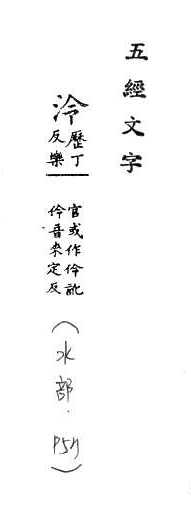 五經文字
泠
歷丁
反樂
官或作伶訛
伶音来定反
(水部.P57)